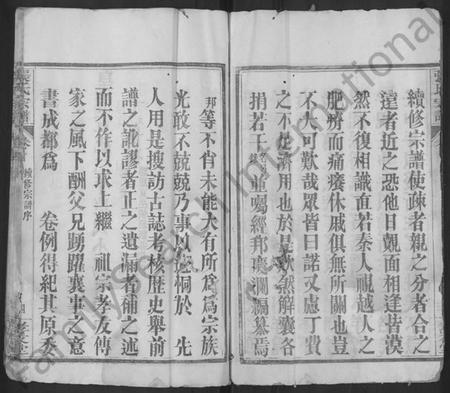 續修宗譜使疎者親之分者合之
遠者近之恐他日覿面相逢皆漠
然不復相識直若秦人視越人之
肥瘠而痛癢休戚俱無所關也豈
不大可歎哉眾皆曰諾又慮丁費
之不足濟用也於是欣然解囊各
捐若干 重囑經邦 瀾編纂焉
邦等不肖未能大有所為為宗族
光敢不兢兢乃事以遺恫於 先
人用是搜訪古誌考核歷史舉前
譜之訛謬者正之遺漏者補之述
而不作以求上繼 祖宗孝友傳
家之風下酬父兄踴躍襄事之意
書成都為 卷例得紀其原委
張氏宗譜
續修宗譜序
FamilySearch International